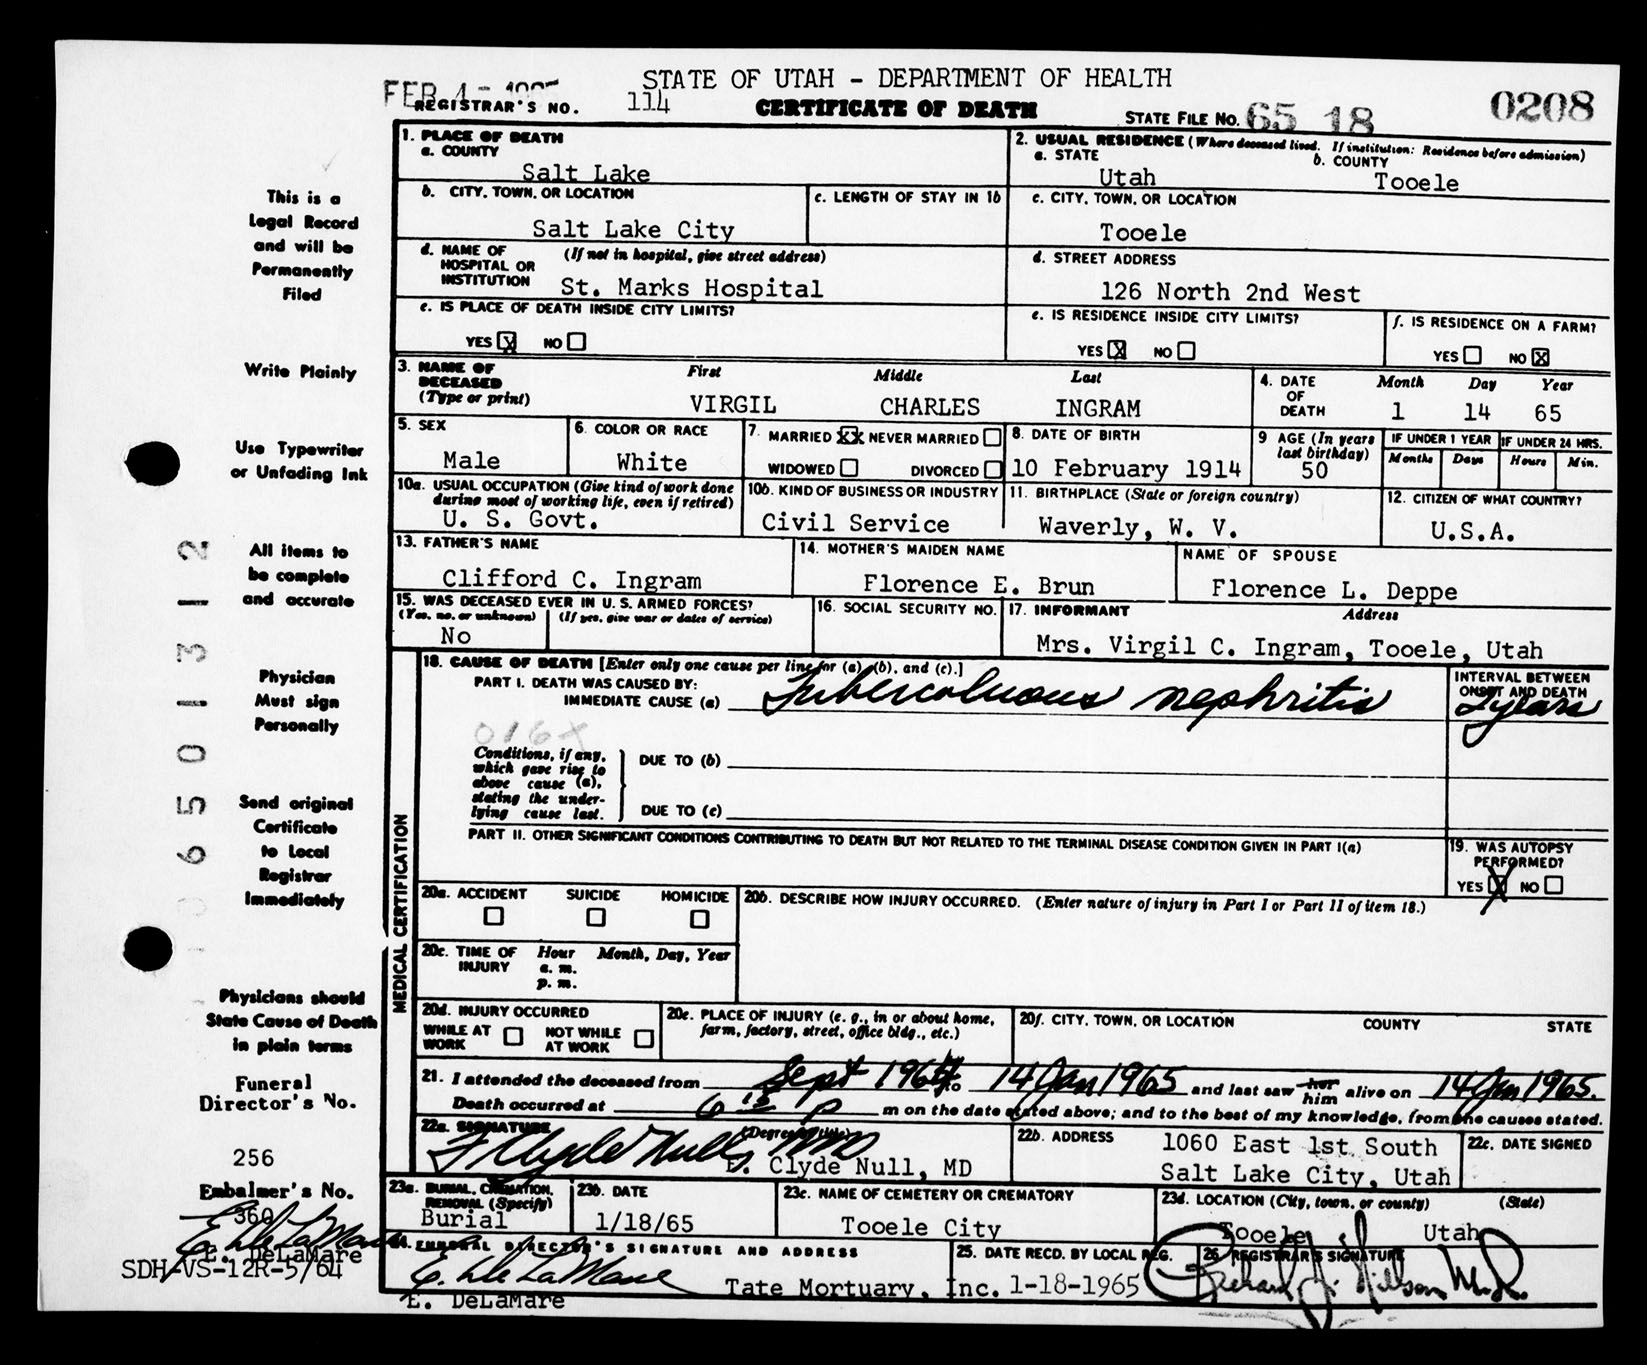 STATE OF UTAH - DEPARTMENT OF HEALTH
FEB 4 -
REGISTRAR'S NO. 114 CERTIFICATE OF DEATH STATE FILE NO. 65 18 0208
This is a
Legal Record
and will be
Permanently
Filed
Write Plainly
Use Typewriter
or Unfading Ink
All items to
be complete
and accurate
Physician
Must sign
Personally
Send original
Certificate
to Local
Registrar
Immediately
Physicians should
State Cause of Death
in plain terms
Funeral
Director's No.
256
Embalmer's No.
360
E. DeLaMare
E. DeLaMare
SDH-VS-12R-5/64
0 6 5 0 1 3 1 2
1. PLACE OF DEATH
a. COUNTY
Salt Lake
2. USUAL RESIDENCE (Where deceased lived. If institution: Residence before admission)
a. STATE b. COUNTY
Utah Tooele
b. CITY, TOWN, OR LOCATION c. LENGTH OF STAY IN 1b
Salt Lake City
c. CITY, TOWN, OR LOCATION
Tooele
d. NAME OF HOSPITAL OR INSTITUTION (If not in hospital, give street address)
St. Marks Hospital
d. STREET ADDRESS
126 North 2nd West
e. IS PLACE OF DEATH INSIDE CITY LIMITS?
YES X NO
e. IS RESIDENCE INSIDE CITY LIMITS?
YES X NO
f. IS RESIDENCE ON A FARM?
YES NO X
3. NAME OF DECEASED (Type or print) First Middle Last
VIRGIL CHARLES INGRAM
4. DATE OF DEATH Month Day Year
1 14 65
5. SEX
Male
6. COLOR OR RACE
White
7. MARRIED XX NEVER MARRIED
WIDOWED DIVORCED
8. DATE OF BIRTH
10 February 1914
9 AGE (In years last birthday)
50
IF UNDER 1 YEAR IF UNDER 24 HRS.
Months Days Hours Min.
10a. USUAL OCCUPATION (Give kind of work done
during most of working life, even if retired)
U. S. Govt.
10b. KIND OF BUSINESS OR INDUSTRY
Civil Service
11. BIRTHPLACE (State or foreign country)
Waverly, W. V.
12. CITIZEN OF WHAT COUNTRY?
U.S.A.
13. FATHER'S NAME
Clifford C. Ingram
14. MOTHER'S MAIDEN NAME
Florence E. Brun
NAME OF SPOUSE
Florence L. Deppe
15. WAS DECEASED EVER IN U. S. ARMED FORCES?
(Yes, no, or unknown) (If yes, give war or dates of service)
No
16. SOCIAL SECURITY NO.
17. INFORMANT Address
Mrs. Virgil C. Ingram, Tooele, Utah
MEDICAL CERTIFICATION
18. CAUSE OF DEATH [Enter only one cause per line for (a), (b), and (c).]
PART I. DEATH WAS CAUSED BY:
IMMEDIATE CAUSE (a) Tuberculuous nephritis
INTERVAL BETWEEN
ONSET AND DEATH
2 years
016X
Conditions, if any,
which gave rise to
above cause (a),
stating the under-
lying cause last.
DUE TO (b)
DUE TO (c)
PART II. OTHER SIGNIFICANT CONDITIONS CONTRIBUTING TO DEATH BUT NOT RELATED TO THE TERMINAL DISEASE CONDITION GIVEN IN PART I(a)
19. WAS AUTOPSY
PERFORMED?
YES X NO
20a. ACCIDENT SUICIDE HOMICIDE
20b. DESCRIBE HOW INJURY OCCURRED. (Enter nature of injury in Part I or Part II of item 18.)
20c. TIME OF INJURY Hour Month, Day, Year
a. m.
p. m.
20d. INJURY OCCURRED
WHILE AT WORK NOT WHILE AT WORK
20e. PLACE OF INJURY (e. g., in or about home,
farm, factory, street, office bldg., etc.)
20f. CITY, TOWN, OR LOCATION COUNTY STATE
21. I attended the deceased from Sept 1964 to 14 Jan 1965 and last saw her him alive on 14 Jan 1965.
Death occurred at 6 15 P m on the date stated above; and to the best of my knowledge, from the causes stated.
22a. SIGNATURE (Degree or title)
F Clyde Null MD
F. Clyde Null, MD
22b. ADDRESS
1060 East 1st South
Salt Lake City, Utah
22c. DATE SIGNED
23a. BURIAL, CREMATION,
REMOVAL (Specify)
Burial
23b. DATE
1/18/65
23c. NAME OF CEMETERY OR CREMATORY
Tooele City
23d. LOCATION (City, town, or county) (State)
Tooele Utah
24. FUNERAL DIRECTOR'S SIGNATURE AND ADDRESS
E. DeLaMare Tate Mortuary, Inc.
E. DeLaMare
25. DATE RECD. BY LOCAL REG.
1-18-1965
26. REGISTRAR'S SIGNATURE